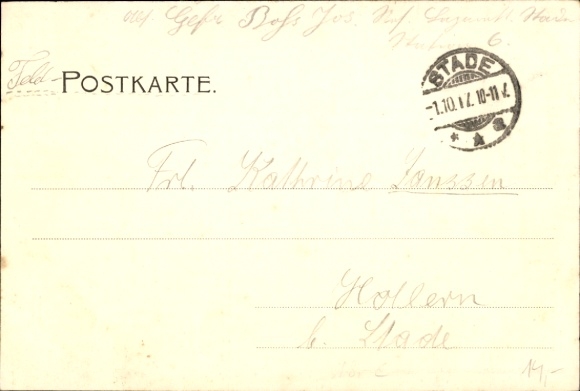 Gefr Boss Jos. Stade
6.
Feld-
POSTKARTE.
STADE
-1.10.17. 10-11 V.
* * a
Frl. Kathrine Janssen
Hollern
b. Stade
14,-